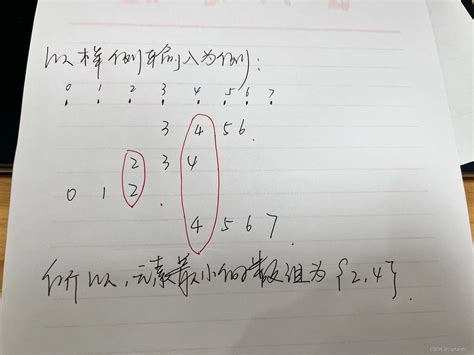 以样例输入为例:
0 1 2 3 4 5 6 7
3 4 5 6
2 3 4
0 1 2
4 5 6 7
所以,元素最小的数组为{2,4}